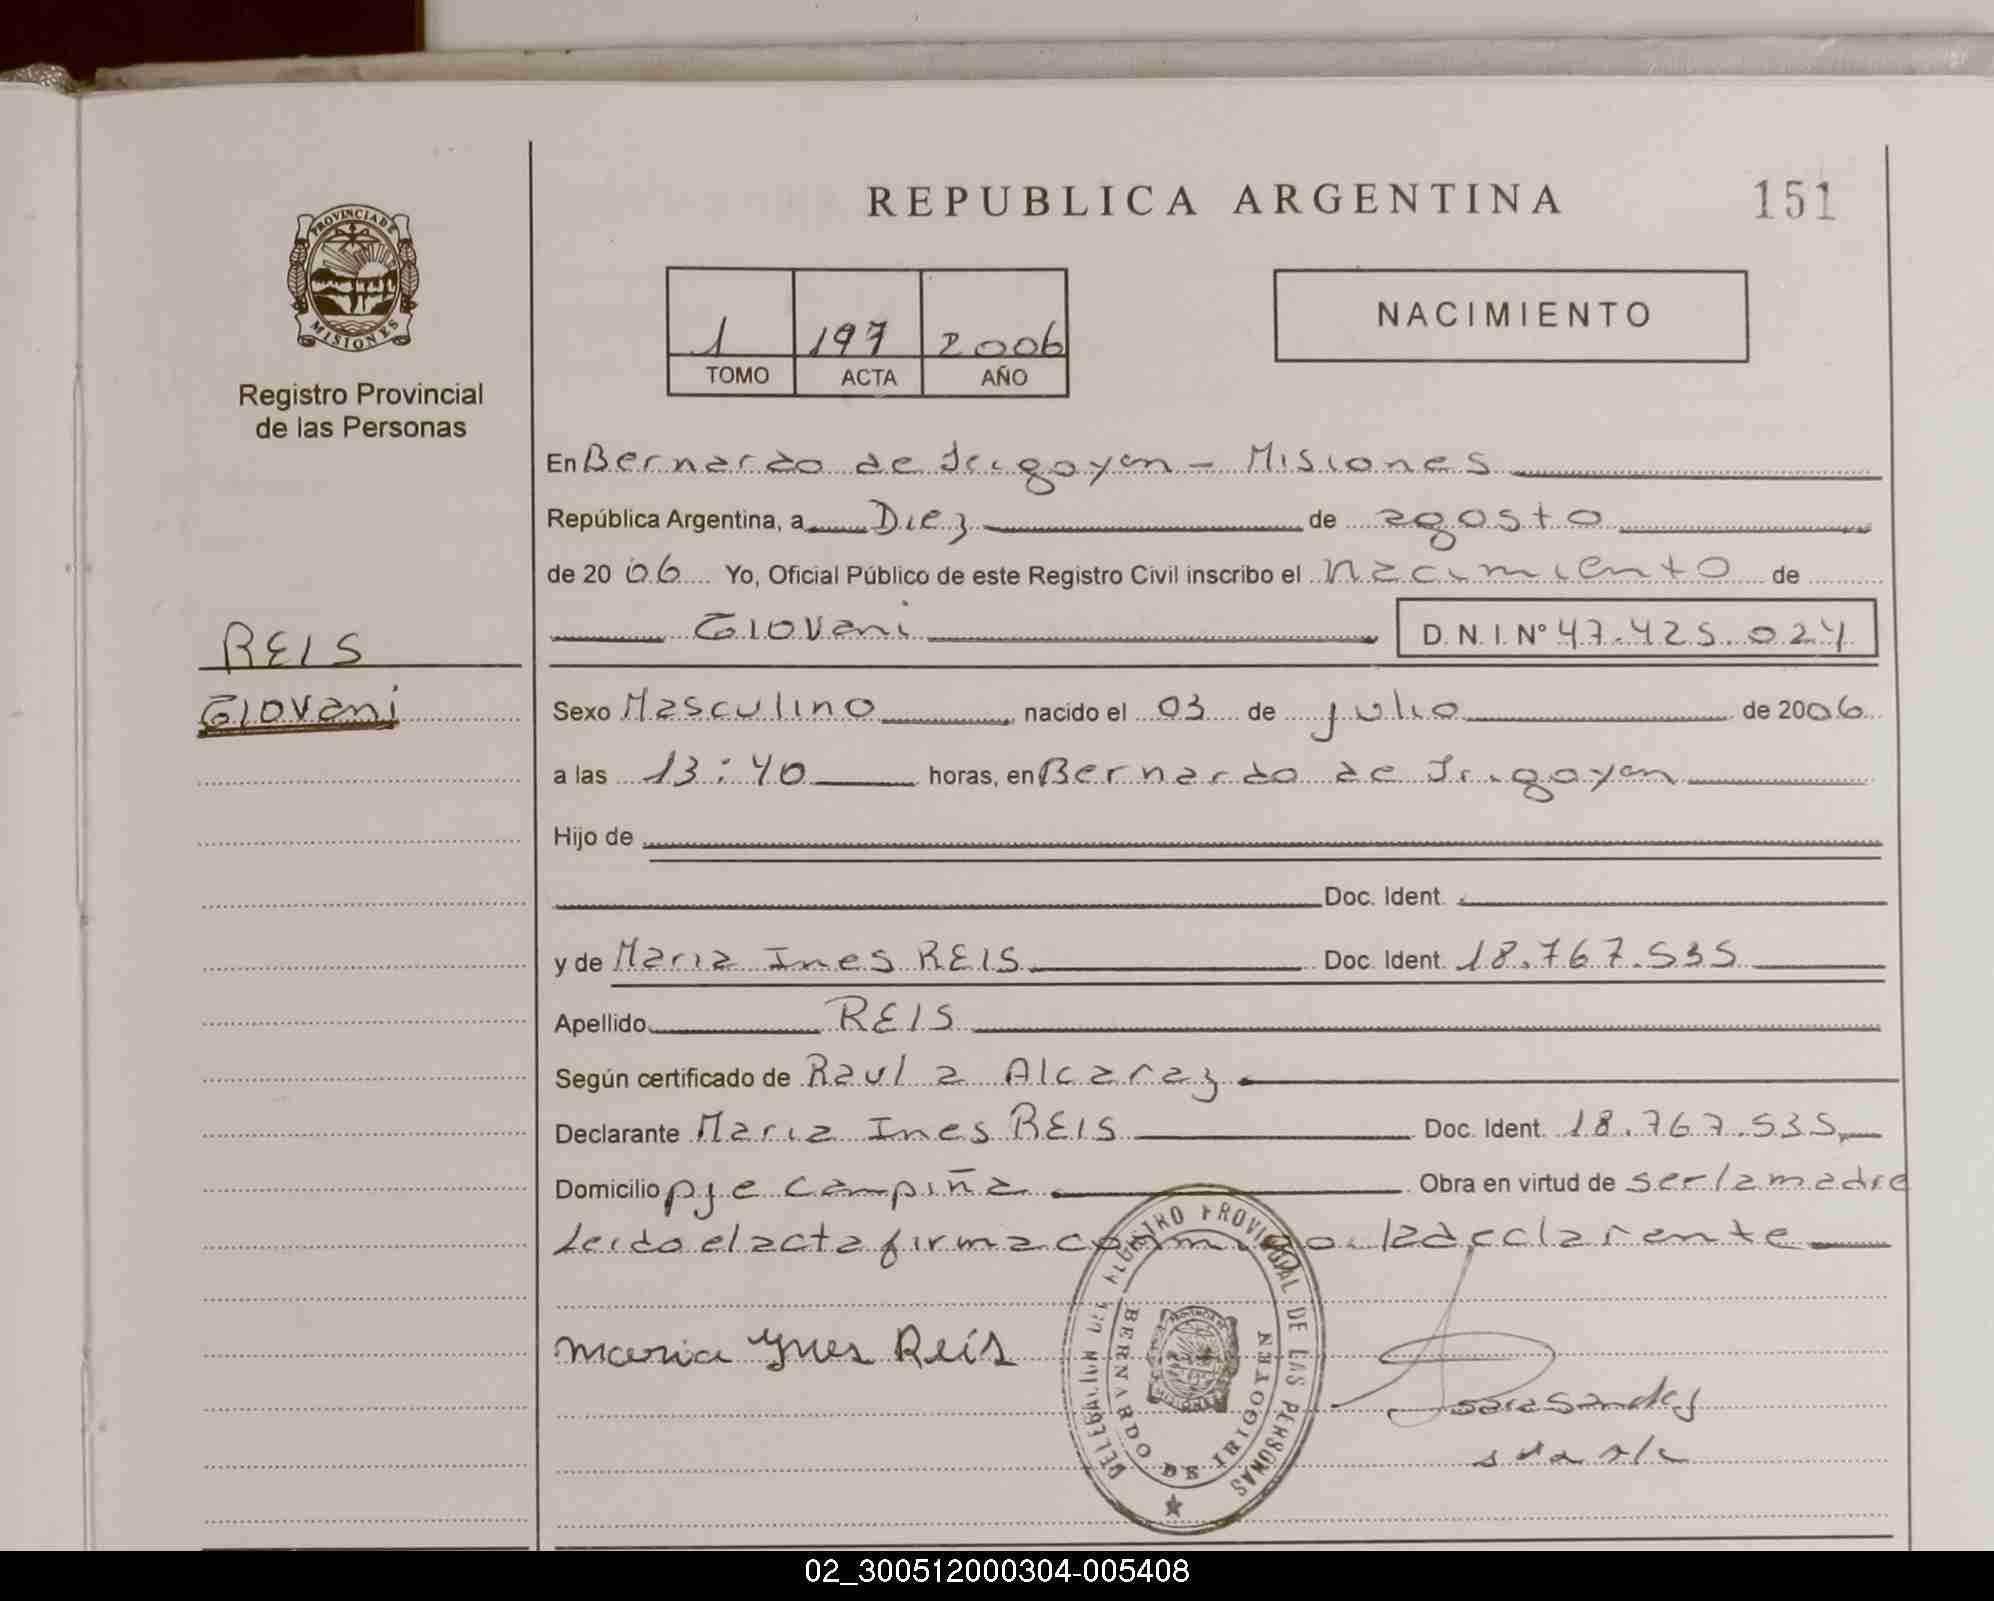 REPUBLICA ARGENTINA
151
PROVINCIA DE
MISIONES
Registro Provincial
de las Personas
1 197 2006
TOMO ACTA AÑO
NACIMIENTO
En Bernardo de Irigoyen - Misiones
República Argentina, a Diez de agosto
de 2006 Yo, Oficial Público de este Registro Civil inscribo el nacimiento de
Giovani D. N. I. Nº 47.425.024
REIS
Giovani
Sexo Masculino nacido el 03 de julio de 2006
a las 13:40 horas, en Bernardo de Irigoyen
Hijo de
Doc. Ident.
y de Maria Ines REIS Doc. Ident. 18.767.535
Apellido REIS
Según certificado de Raul a Alcaraz
Declarante Maria Ines REIS Doc. Ident. 18.767.535
Domicilio pje campiña Obra en virtud de ser la madre
Leido el acta firma conmigo la declarante
maria Ynes Reis
DELEGACION DEL REGISTRO PROVINCIAL DE LAS PERSONAS
BERNARDO DE IRIGOYEN
02_300512000304-005408